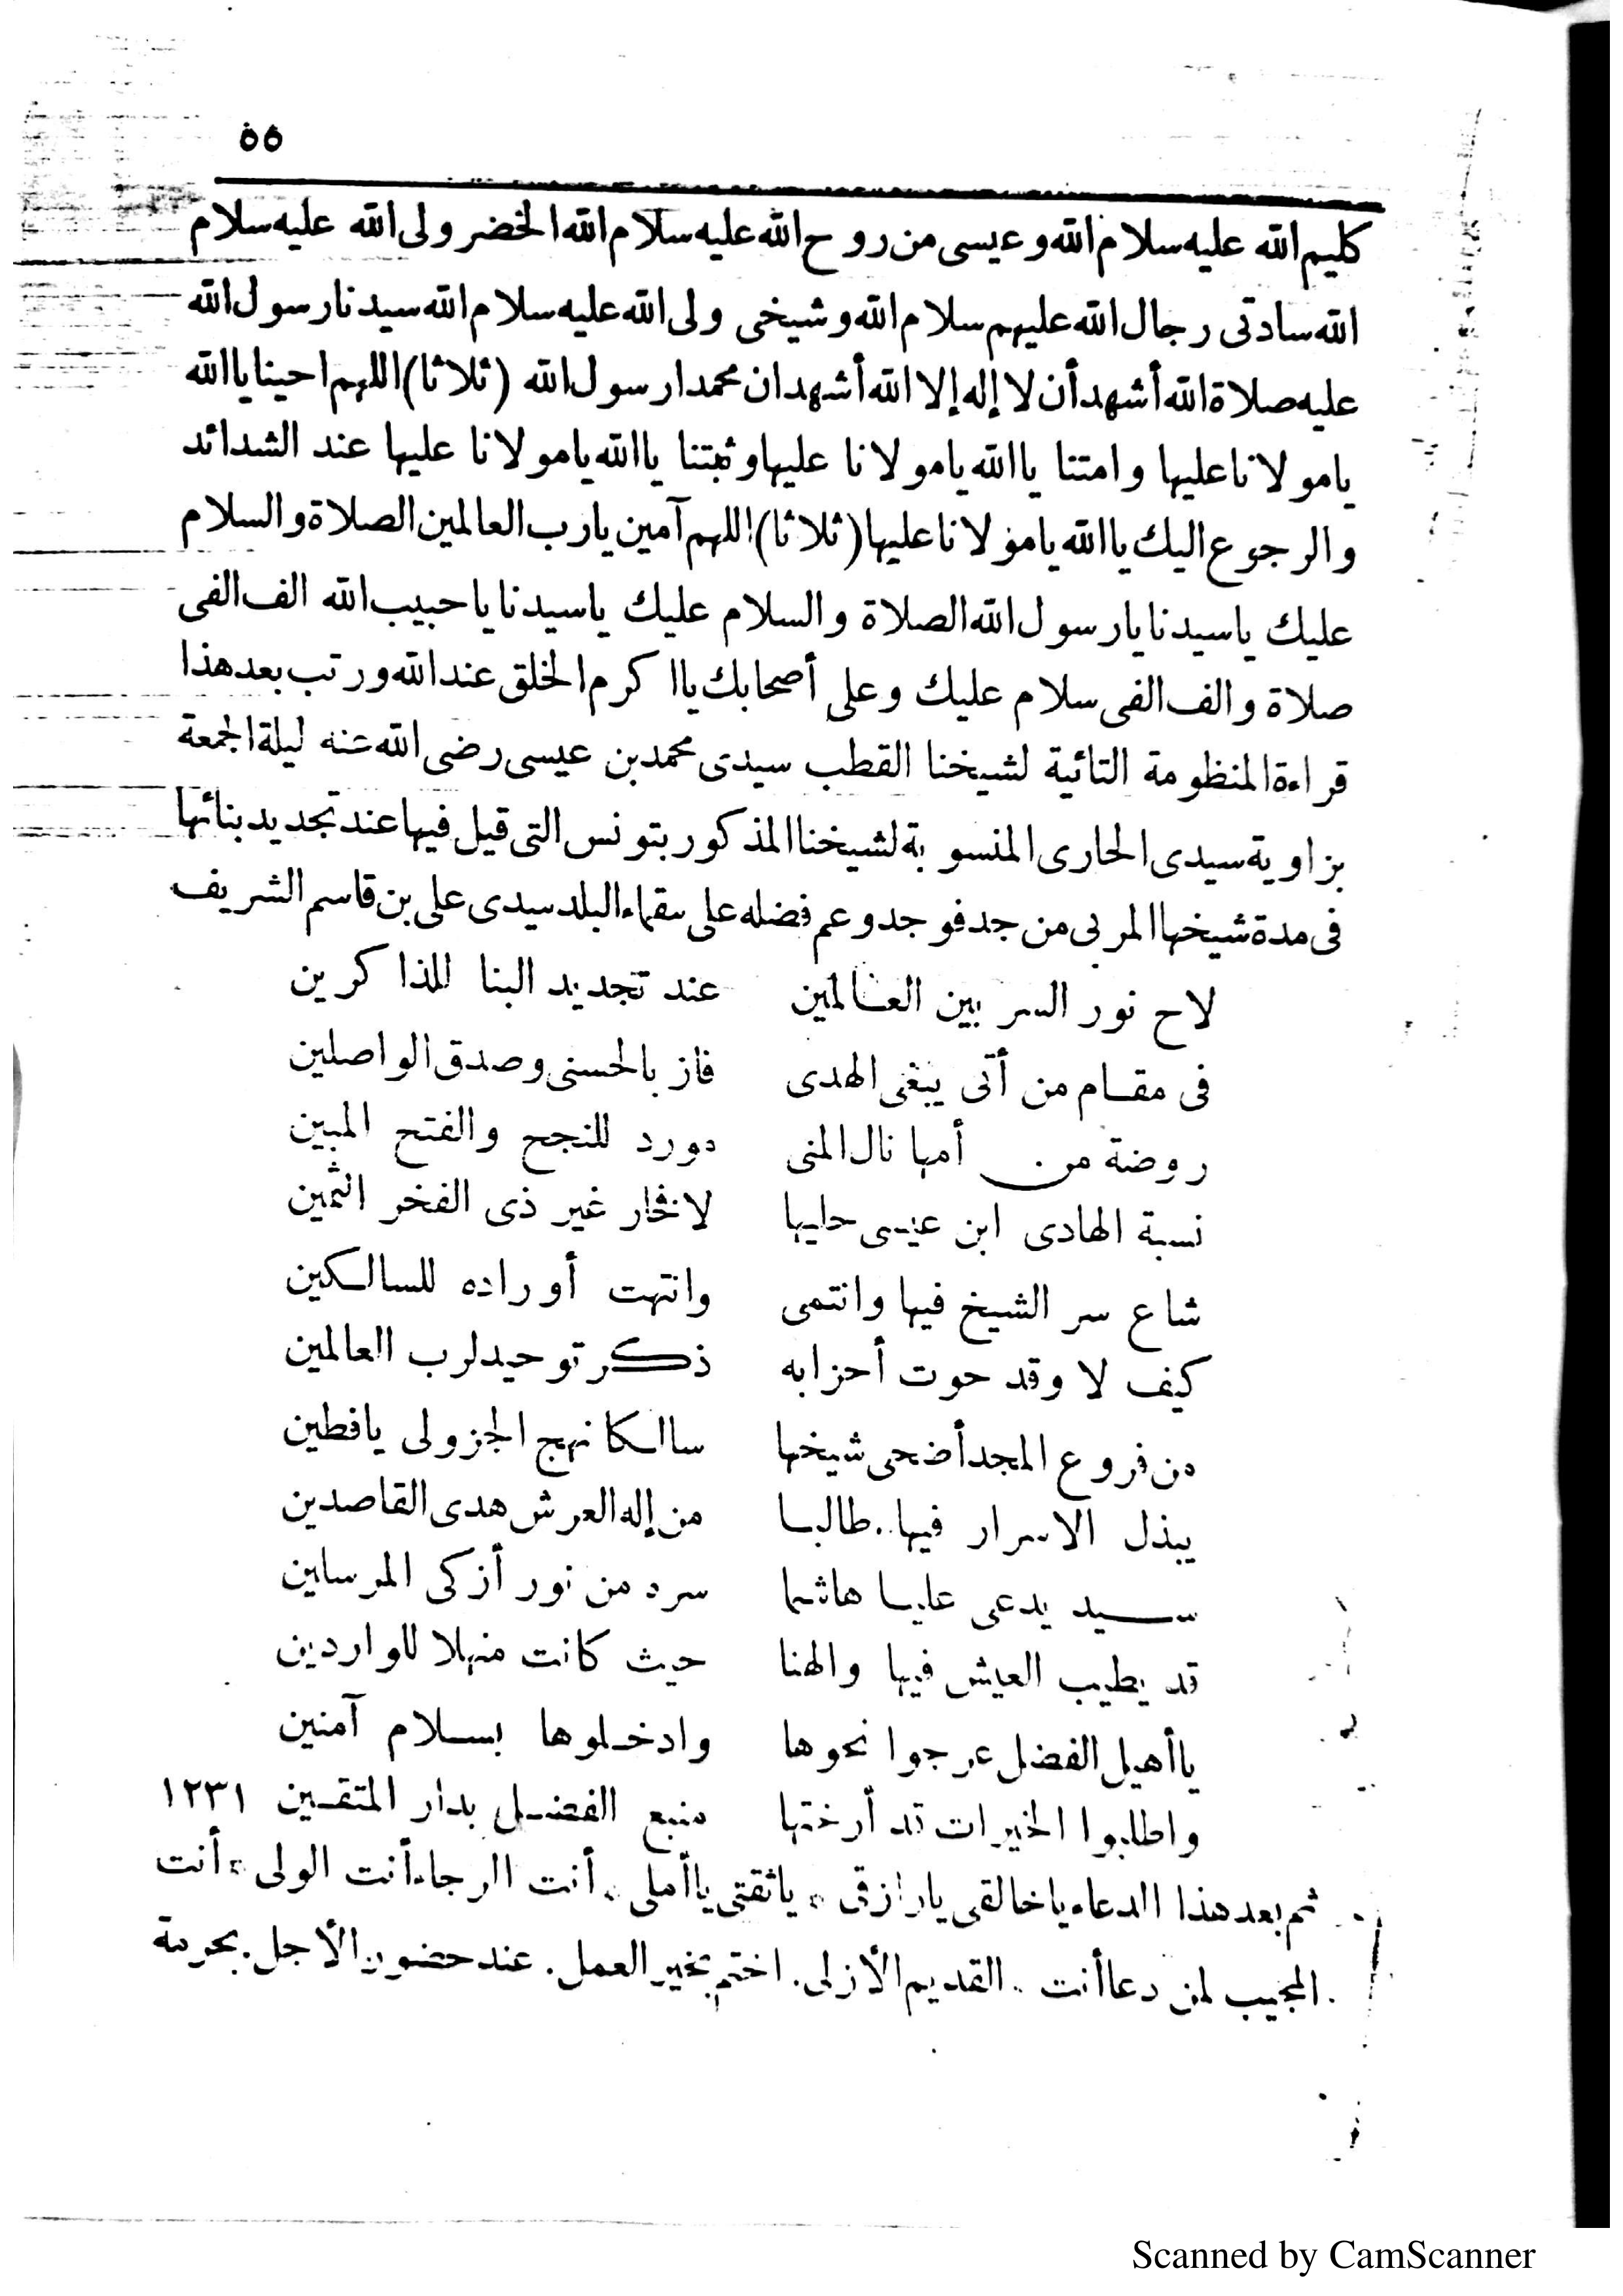 ٥٥
كليم الله عليه سلام الله وعيسى من روح الله عليه سلام الله الخضر ولى الله عليه سلام
الله سادتى رجال الله عليهم سلام الله وشيخى ولى الله عليه سلام الله سيدنا رسول الله
عليه صلاة الله أشهد أن لا إله إلا الله أشهد ان محمدا رسول الله (ثلاثا) اللهم احينا يا الله
يا مولانا عليها وامتنا يا الله يا مولانا عليها وثبتنا يا الله يا مولانا عليها عند الشدائد
والرجوع اليك يا الله يا مولانا عليها (ثلاثا) اللهم آمين يارب العالمين الصلاة والسلام
عليك ياسيدنا يارسول الله الصلاة والسلام عليك ياسيدنا يا حبيب الله الف الفى
صلاة والف الفى سلام عليك وعلى أصحابك يا اكرم الخلق عند الله ورتب بعد هذا
قراءة المنظومة التائية لشيخنا القطب سيدى محمد بن عيسى رضى الله عنه ليلة الجمعة
بزاوية سيدى الحارى المنسوبة لشيخنا المذكور بتونس التى قيل فيها عند تجديد بنائها
فى مدة شيخها المربى من جد فوجد وعم فضله على سقماء البلد سيدى على بن قاسم الشريف
لاح نور السر بين العالمين عند تجديد البنا للذاكرين
فى مقام من أتى يبغى الهدى فاز بالحسنى وصدق الواصلين
روضة من أمها نال المنى مورد للنجح والفتح المبين
نسبة الهادى ابن عيسى حليها لا فخار غير ذى الفخر الثمين
شاع سر الشيخ فيها وانتمى وانتهت أوراده للسالكين
كيف لا وقد حوت أحزابه ذكر توحيد لرب العالمين
من فروع المجد أضحى شيخها سالكا نهج الجزولى يافطين
يبذل الاسرار فيها طالبا من إله العرش هدى القاصدين
سيد يدعى عليا هاشما سره من نور أزكى المرسلين
قد يطيب العيش فيها والهنا حيث كانت منهلا للواردين
يا أهيل الفضل عرجوا نحوها وادخلوها بسلام آمنين
واطلبوا الخيرات قد أرختها منبع الفضل بدار المتقين ١٢٣١
ثم بعد هذا الدعاء ياخالقى يارازقى * ياثقتى يا أملى * أنت الرجاء أنت الولى * أنت
المجيب لمن دعا أنت . القديم الأزلى . اختم بخير العمل . عند حضور الأجل . بحرمة
Scanned by CamScanner